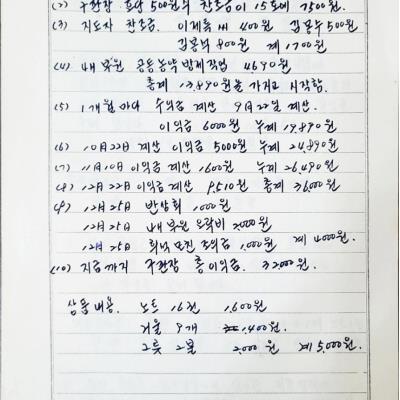 (2) 구판장 호당 500원의 찬조금이 15호에 7500원.
(3) 지도사 찬조금. 이계륙씨 400원 김용수 500원
김용식 800원 계 1700원
(4) 새마을 공동농약방제작업 4,690원
총계 13,890원을 가지고 시작함.
(5) 1개월마다 수익금 계산 9月22日 계산.
이익금 6000원 누계 19,890원
(6) 10月22日 계산 이익금 5000원 누계 24,890원
(7) 11月10日 이익금 계산 1,600원 누계 26,490원
(8) 12月22日 이익금 계산 9,510원 총계 36000원
(9) 12月25日 반상회 1,000원
12月25日 새마을 오락비 2000원
12月25日 회념 조의금 1,000원 계 4000원.
(10) 지금까지 구판장 총이익금. 32,000원.
상품내용. 노트 16권 1,600원
거울 7개 1,400원.
그릇 2불 2,000원 계 5,000원.